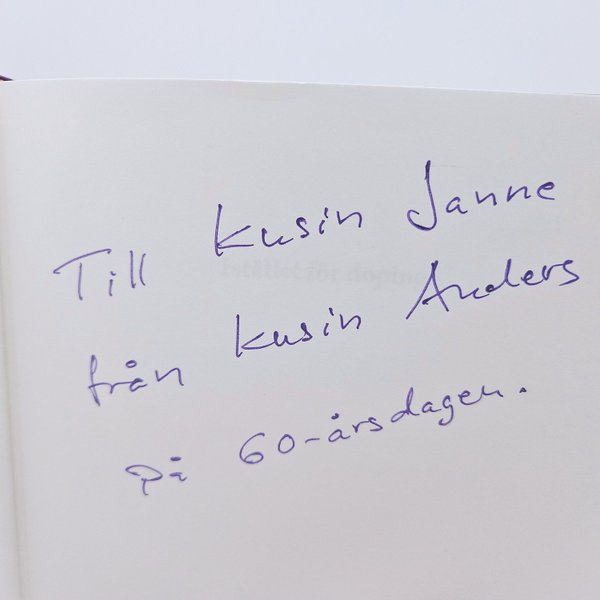 Till kusin Janne
Istället för doping
från kusin Anders
på 60-årsdagen.